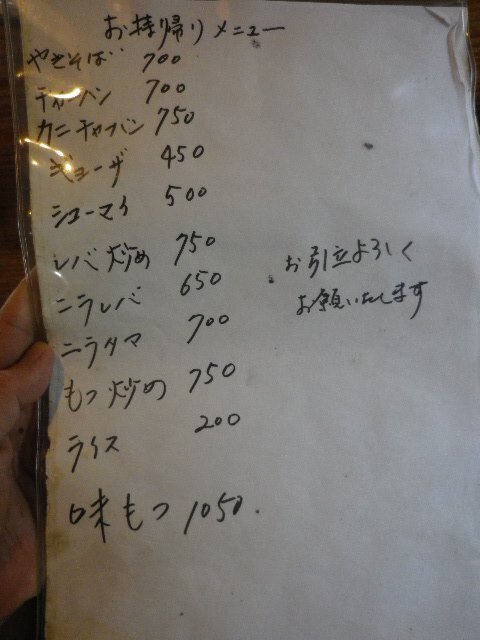 お持帰りメニュー
やきそば 700
チャーハン 700
カニチャーハン 750
ギョーザ 450
シューマイ 500
レバ炒め 750
ニラレバ 650
ニラタマ 700
もつ炒め 750
ライス 200
味もつ 1050.
お引立よろしく
お願いたします